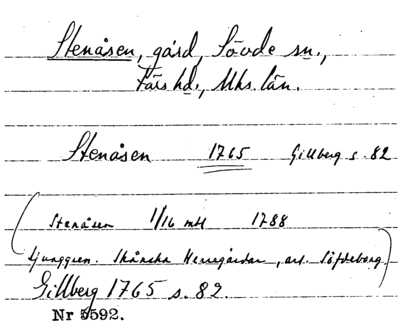 Stenåsen, gård, Sövde sn.,
Färs hd., Mhs. län.
Stenåsen 1765 Gillberg s. 82
(Stenåsen 1/16 mtl 1788
Ljunggren. Skånska Herregårdar, art. Söfdeborg.)
Gillberg 1765 s. 82.
Nr 5592.